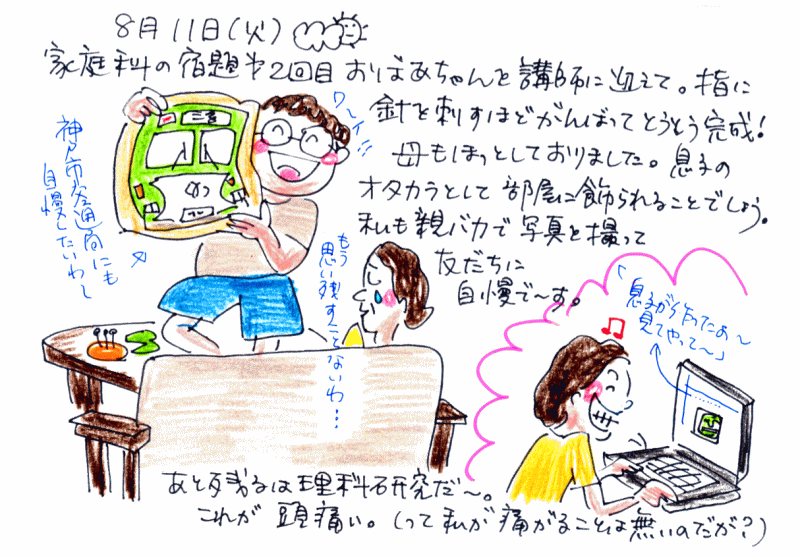 8月11日(火)
家庭科の宿題第2回目 おばあちゃんを講師に迎えて。指に
針を刺すほどがんばってとうとう完成!
母もほっとしておりました。息子の
オタカラとして部屋に飾られることでしょう。
私も親バカで写真を撮って
友だちに
自慢で〜す。
ワ〜イ!!
三宮
神戸市交通局にも
自慢したいわ〜
もう
思い残すことないわ…
「息子が作ったの〜
見てやって〜」
あと残るは理科研究だ〜。
これが頭痛い。(って私が痛がることは無いのだが?)